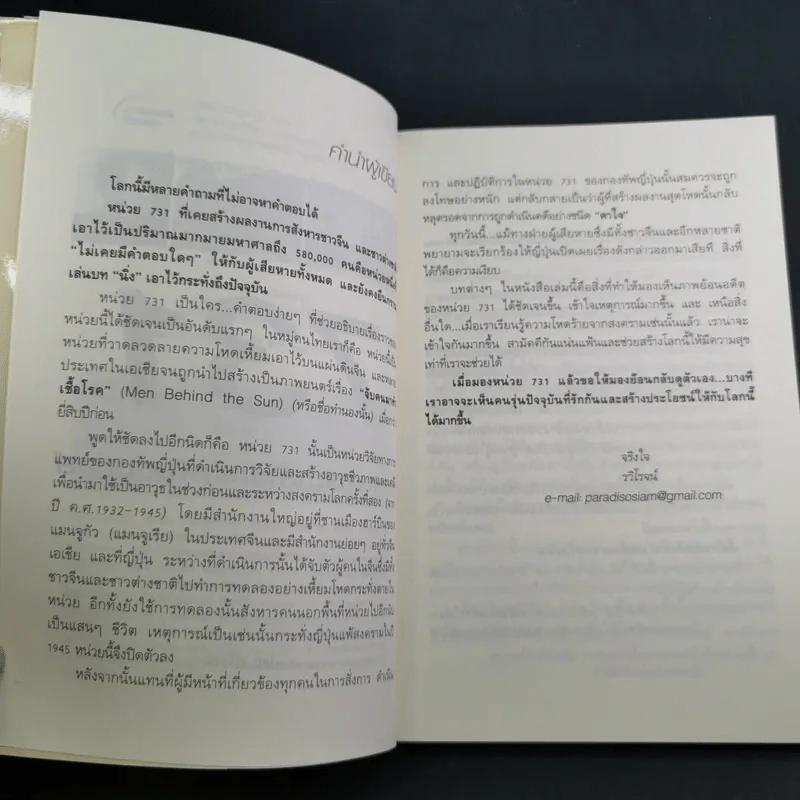 คำนำผู้เขียน
โลกนี้มีหลายคำถามที่ไม่อาจหาคำตอบได้
หน่วย 731 ที่เคยสร้างผลงานการสังหารชาวจีน และชาวต่างชาติ
เอาไว้เป็นปริมาณมากมายมหาศาลถึง 580,000 คนคือหน่วยหนึ่งที่
"ไม่เคยมีคำตอบใดๆ" ให้กับผู้เสียหายทั้งหมด และยังคงยืนกราน
เล่นบท "นิ่ง" เอาไว้กระทั่งถึงปัจจุบัน
หน่วย 731 เป็นใคร...คำตอบง่ายๆ ที่ช่วยอธิบายเรื่องราวของ
หน่วยนี้ได้ชัดเจนเป็นอันดับแรกๆ ในหมู่คนไทยเราก็คือ หน่วยนี้เป็น
หน่วยที่วาดลวดลายความโหดเหี้ยมเอาไว้บนแผ่นดินจีน และหลาย
ประเทศในเอเชียจนถูกนำไปสร้างเป็นภาพยนตร์เรื่อง "จับคนมาทำ
เชื้อโรค" (Men Behind the Sun) (หรือชื่อทำนองนั้น) เมื่อกว่า
ยี่สิบปีก่อน
พูดให้ชัดลงไปอีกนิดก็คือ หน่วย 731 นั้นเป็นหน่วยวิจัยทางการ
แพทย์ของกองทัพญี่ปุ่นที่ดำเนินการวิจัยและสร้างอาวุธชีวภาพและเคมี
เพื่อนำมาใช้เป็นอาวุธในช่วงก่อนและระหว่างสงครามโลกครั้งที่สอง (จาก
ปี ค.ศ.1932-1945) โดยมีสำนักงานใหญ่อยู่ที่ชานเมืองฮาร์บินของ
แมนจูกัว (แมนจูเรีย) ในประเทศจีนและมีสำนักงานย่อยๆ อยู่ทั่ว
เอเชีย และที่ญี่ปุ่น ระหว่างที่ดำเนินการนั้นได้จับตัวผู้คนในจีนซึ่งมีทั้ง
ชาวจีนและชาวต่างชาติไปทำการทดลองอย่างเหี้ยมโหดกระทั่งตายใน
หน่วย อีกทั้งยังใช้การทดลองนั้นสังหารคนนอกพื้นที่หน่วยไปอีกนับ
เป็นแสนๆ ชีวิต เหตุการณ์เป็นเช่นนั้นกระทั่งญี่ปุ่นแพ้สงครามในปี
1945 หน่วยนี้จึงปิดตัวลง
หลังจากนั้นแทนที่ผู้มีหน้าที่เกี่ยวข้องทุกคนในการสั่งการ ดำเนิน
การ และปฏิบัติการในหน่วย 731 ของกองทัพญี่ปุ่นนั้นสมควรจะถูก
ลงโทษอย่างหนัก แต่กลับกลายเป็นว่าผู้ที่สร้างผลงานสุดโหดนั้นกลับ
หลุดรอดจากการถูกดำเนินคดีอย่างชนิด "คาใจ"
ทุกวันนี้...แม้ทางฝ่ายผู้เสียหายซึ่งมีทั้งชาวจีนและอีกหลายชาติ
พยายามจะเรียกร้องให้ญี่ปุ่นเปิดเผยเรื่องดังกล่าวออกมาเสียที สิ่งที่
ได้ก็คือความเงียบ
บทต่างๆ ในหนังสือเล่มนี้คือสิ่งที่ทำให้มองเห็นภาพย้อนอดีต
ของหน่วย 731 ได้ชัดเจนขึ้น เข้าใจเหตุการณ์มากขึ้น และ เหนือสิ่ง
อื่นใด...เมื่อเราเรียนรู้ความโหดร้ายจากสงครามเช่นนั้นแล้ว เราน่าจะ
เข้าใจกันมากขึ้น สามัคคีกันแน่นแฟ้นและช่วยสร้างโลกนี้ให้มีความสุข
เท่าที่เราจะช่วยได้
เมื่อมองหน่วย 731 แล้วขอให้มองย้อนกลับดูตัวเอง...บางที
เราอาจจะเห็นคนรุ่นปัจจุบันที่รักกันและสร้างประโยชน์ให้กับโลกนี้
ได้มากขึ้น
จริงใจ
รวิโรจน์
e-mail: paradisosiam@gmail.com